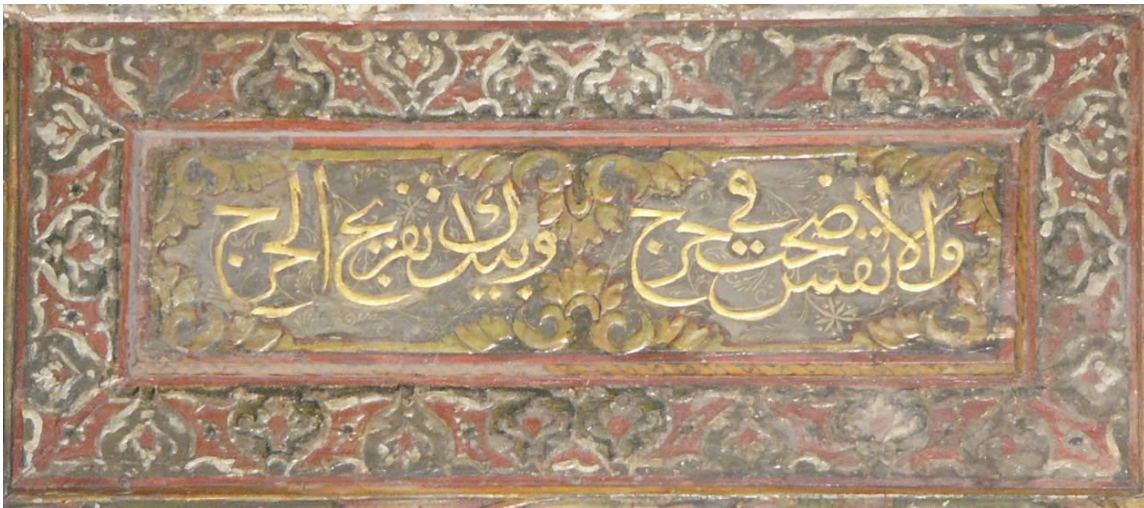 والأنفس ضحت في حرج وبيدك تفريج الحرج